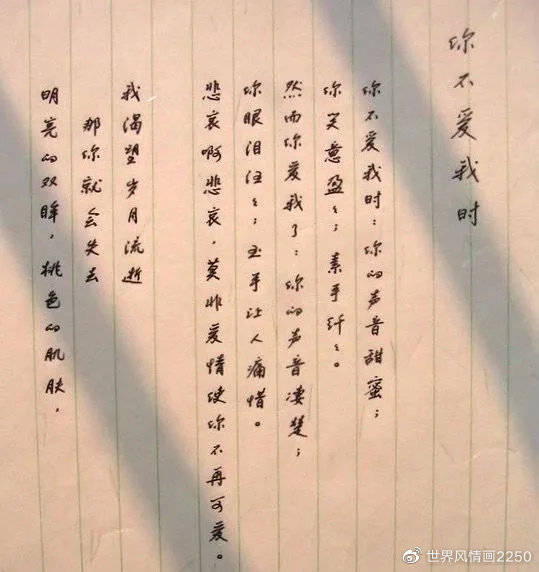 你不爱我时
你不爱我时：你的声音甜蜜；
你笑意盈々；素手纤々。
然而你爱我了：你的声音凄楚；
你眼泪汪々；玉手让人痛惜。
悲哀啊悲哀，莫非爱情使你不再可爱。
我渴望岁月流逝
那你就会失去
明亮的双眸，桃色的肌肤，
世界风情画2250